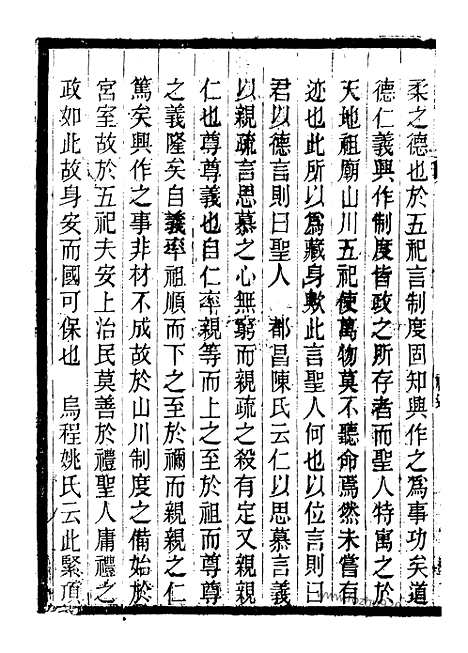 柔之德也於五祀言制度固知興作之爲事功矣道
德仁義興作制度皆政之所存者而聖人特寓之於
天地祖廟山川五祀使萬物莫不聽命焉然未嘗有
迹也此所以爲藏身歟此言聖人何也以位言則曰
君以德言則曰聖人　都昌陳氏云仁以思慕言義
以親疏言思慕之心無窮而親疏之殺有定又親親
仁也尊尊義也自仁率親等而上之至於祖而尊尊
之義隆矣自義率祖順而下之至於禰而親親之仁
篤矣興作之事非材不成故於山川制度之備始於
宮室故於五祀夫安上治民莫善於禮聖人庸禮之
政如此故身安而國可保也　烏程姚氏云此緊頂